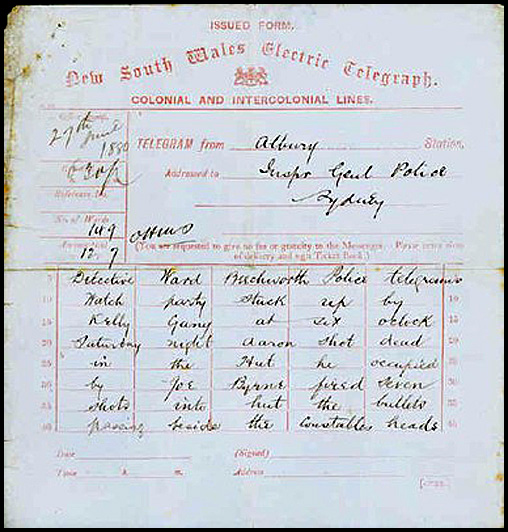 ISSUED FORM.
New South Wales Electric Telegraph.
COLONIAL AND INTERCOLONIAL LINES.
27th June
1880
TELEGRAM from Albury Station,
Addressed to Inspr Genl Police
Sydney
Reference No.
No. of Words
149
OHMS
12.7
(You are requested to give no fee or gratuity to the Messenger. Please enter time of delivery and sign Ticket Book.)
5 Detective Ward Beechworth Police telegrams 5
10 Watch party Stuck up by 10
15 Kelly Gang at six oclock 15
20 Saturday night Aaron shot dead 20
25 in the Hut he occupied 25
30 by Joe Byrne fired seven 30
35 shots into hut the bullets 35
40 passing beside the constables heads 40
Date (Signed)
Time h. m. Address